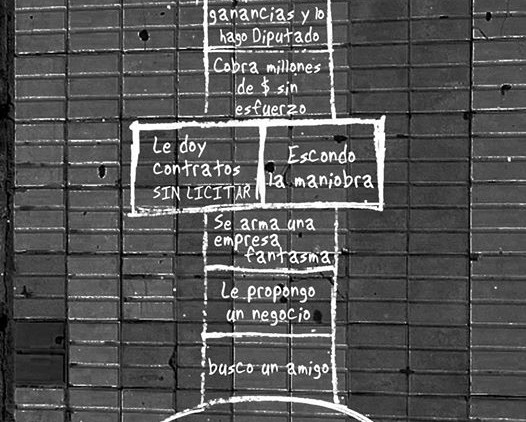 ganancias y lo
hago Diputado
Cobra millones
de $ sin
esfuerzo
Le doy
contratos
SIN LICITAR
Escondo
la maniobra
Se arma una
empresa
fantasma
Le propongo
un negocio
busco un amigo